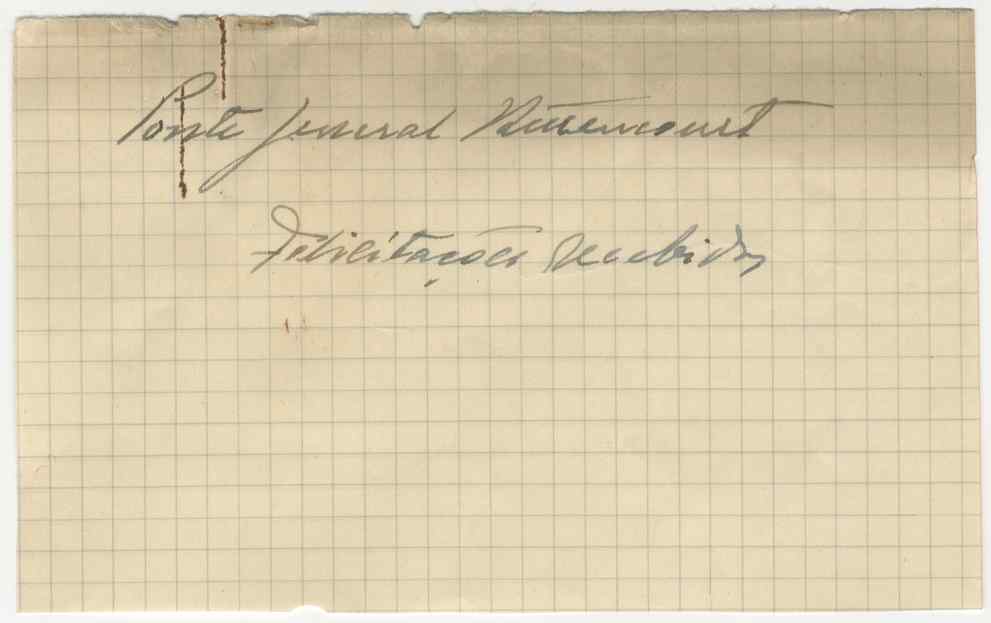 Ponte General Bittencourt
Felicitações recebidas